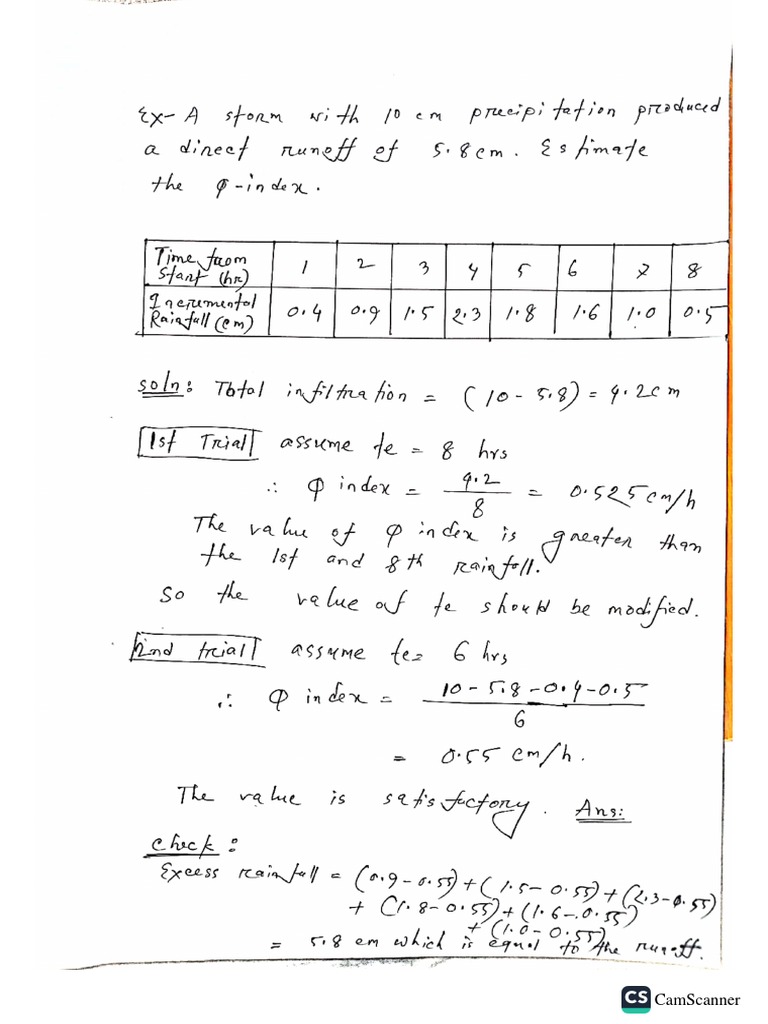 Ex- A storm with 10 cm precipitation produced
a direct runoff of 5.8 cm. Estimate
the φ-index.
Time from Start (hr) 1 2 3 4 5 6 7 8
Incremental Rainfall (cm) 0.4 0.9 1.5 2.3 1.8 1.6 1.0 0.5
soln: Total infiltration = (10 - 5.8) = 4.2 cm
1st Trial assume te = 8 hrs
∴ φ index = 4.2 / 8 = 0.525 cm/h
The value of φ index is greater than
the 1st and 8th rainfall.
So the value of te should be modified.
2nd trial assume te = 6 hrs
∴ φ index = 10 - 5.8 - 0.4 - 0.5 / 6
= 0.55 cm/h.
The value is satisfactory. Ans:
Check:
Excess rainfall = (0.9 - 0.55) + (1.5 - 0.55) + (2.3 - 0.55)
+ (1.8 - 0.55) + (1.6 - 0.55)
+ (1.0 - 0.55)
= 5.8 cm which is equal to the runoff.
CS CamScanner